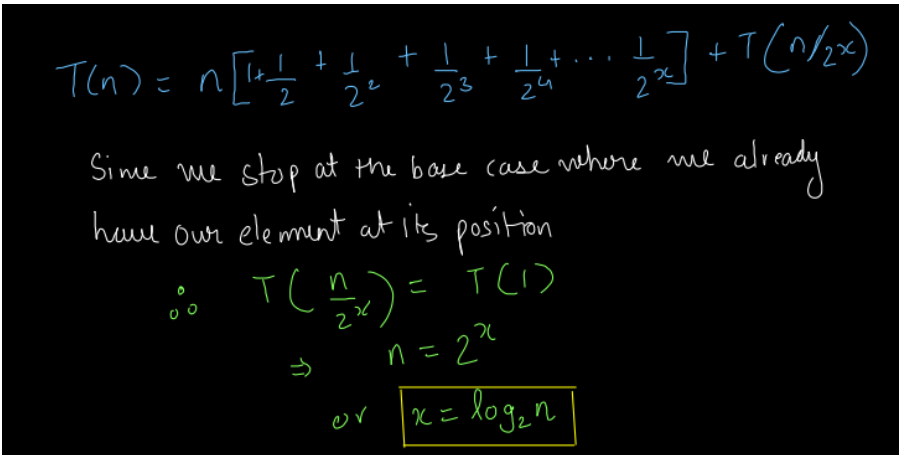 T(n) = n[1+1/2 + 1/2² + 1/2³ + 1/2⁴ + ... 1/2ˣ] + T(n/2x)
Since we stop at the base case where we already
have our element at its position
∴ T(n/2ˣ) = T(1)
⇒ n = 2ˣ
or x = log₂n